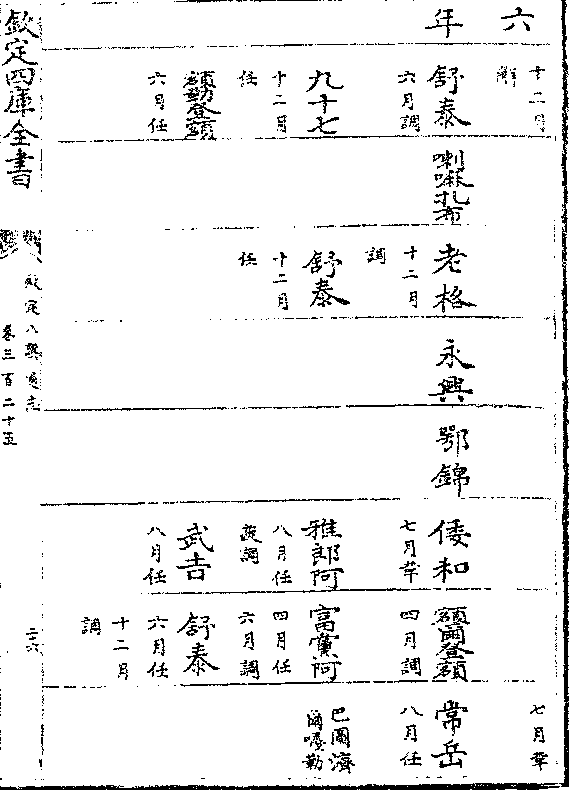 六
十二月
解
七月革
年
舒泰
喇嘛扎布
老格
永興
鄂錦
倭和
額爾登額
常岳
六月調
十二月
調
七月革
四月調
八月任
九十七
舒泰
雅郎阿
富黨阿
巴圖濟
爾噶勒
十二月
任
十二月
任
八月任
旋調
四月任
六月調
額勒登額
武吉
舒泰
六月任
八月任
六月任
十二月
調
欽定四庫全書
欽定八旗通志
卷三百二十五
二十六